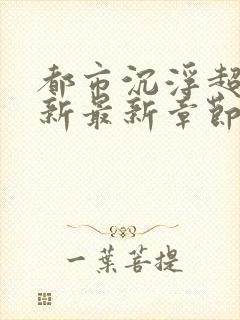 都市沉浮超
新最新章節
一葉菩提